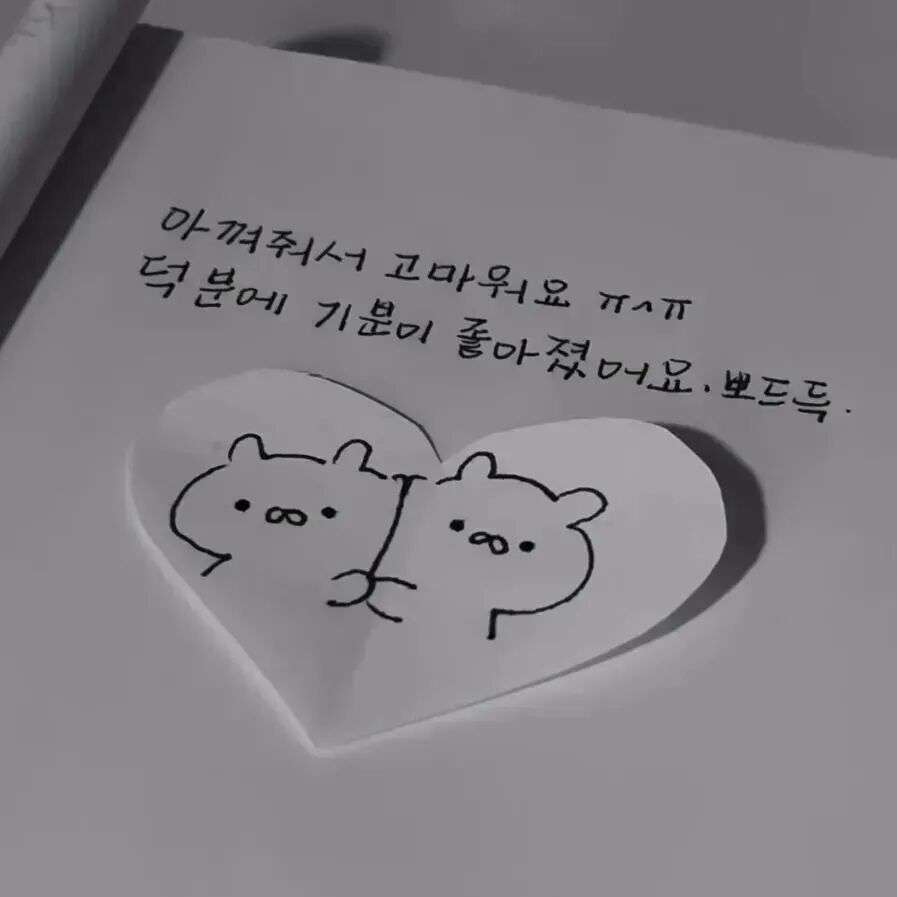 아껴줘서 고마워요 ㅠㅅㅠ
덕분에 기분이 좋아졌어요. 뽀드득.